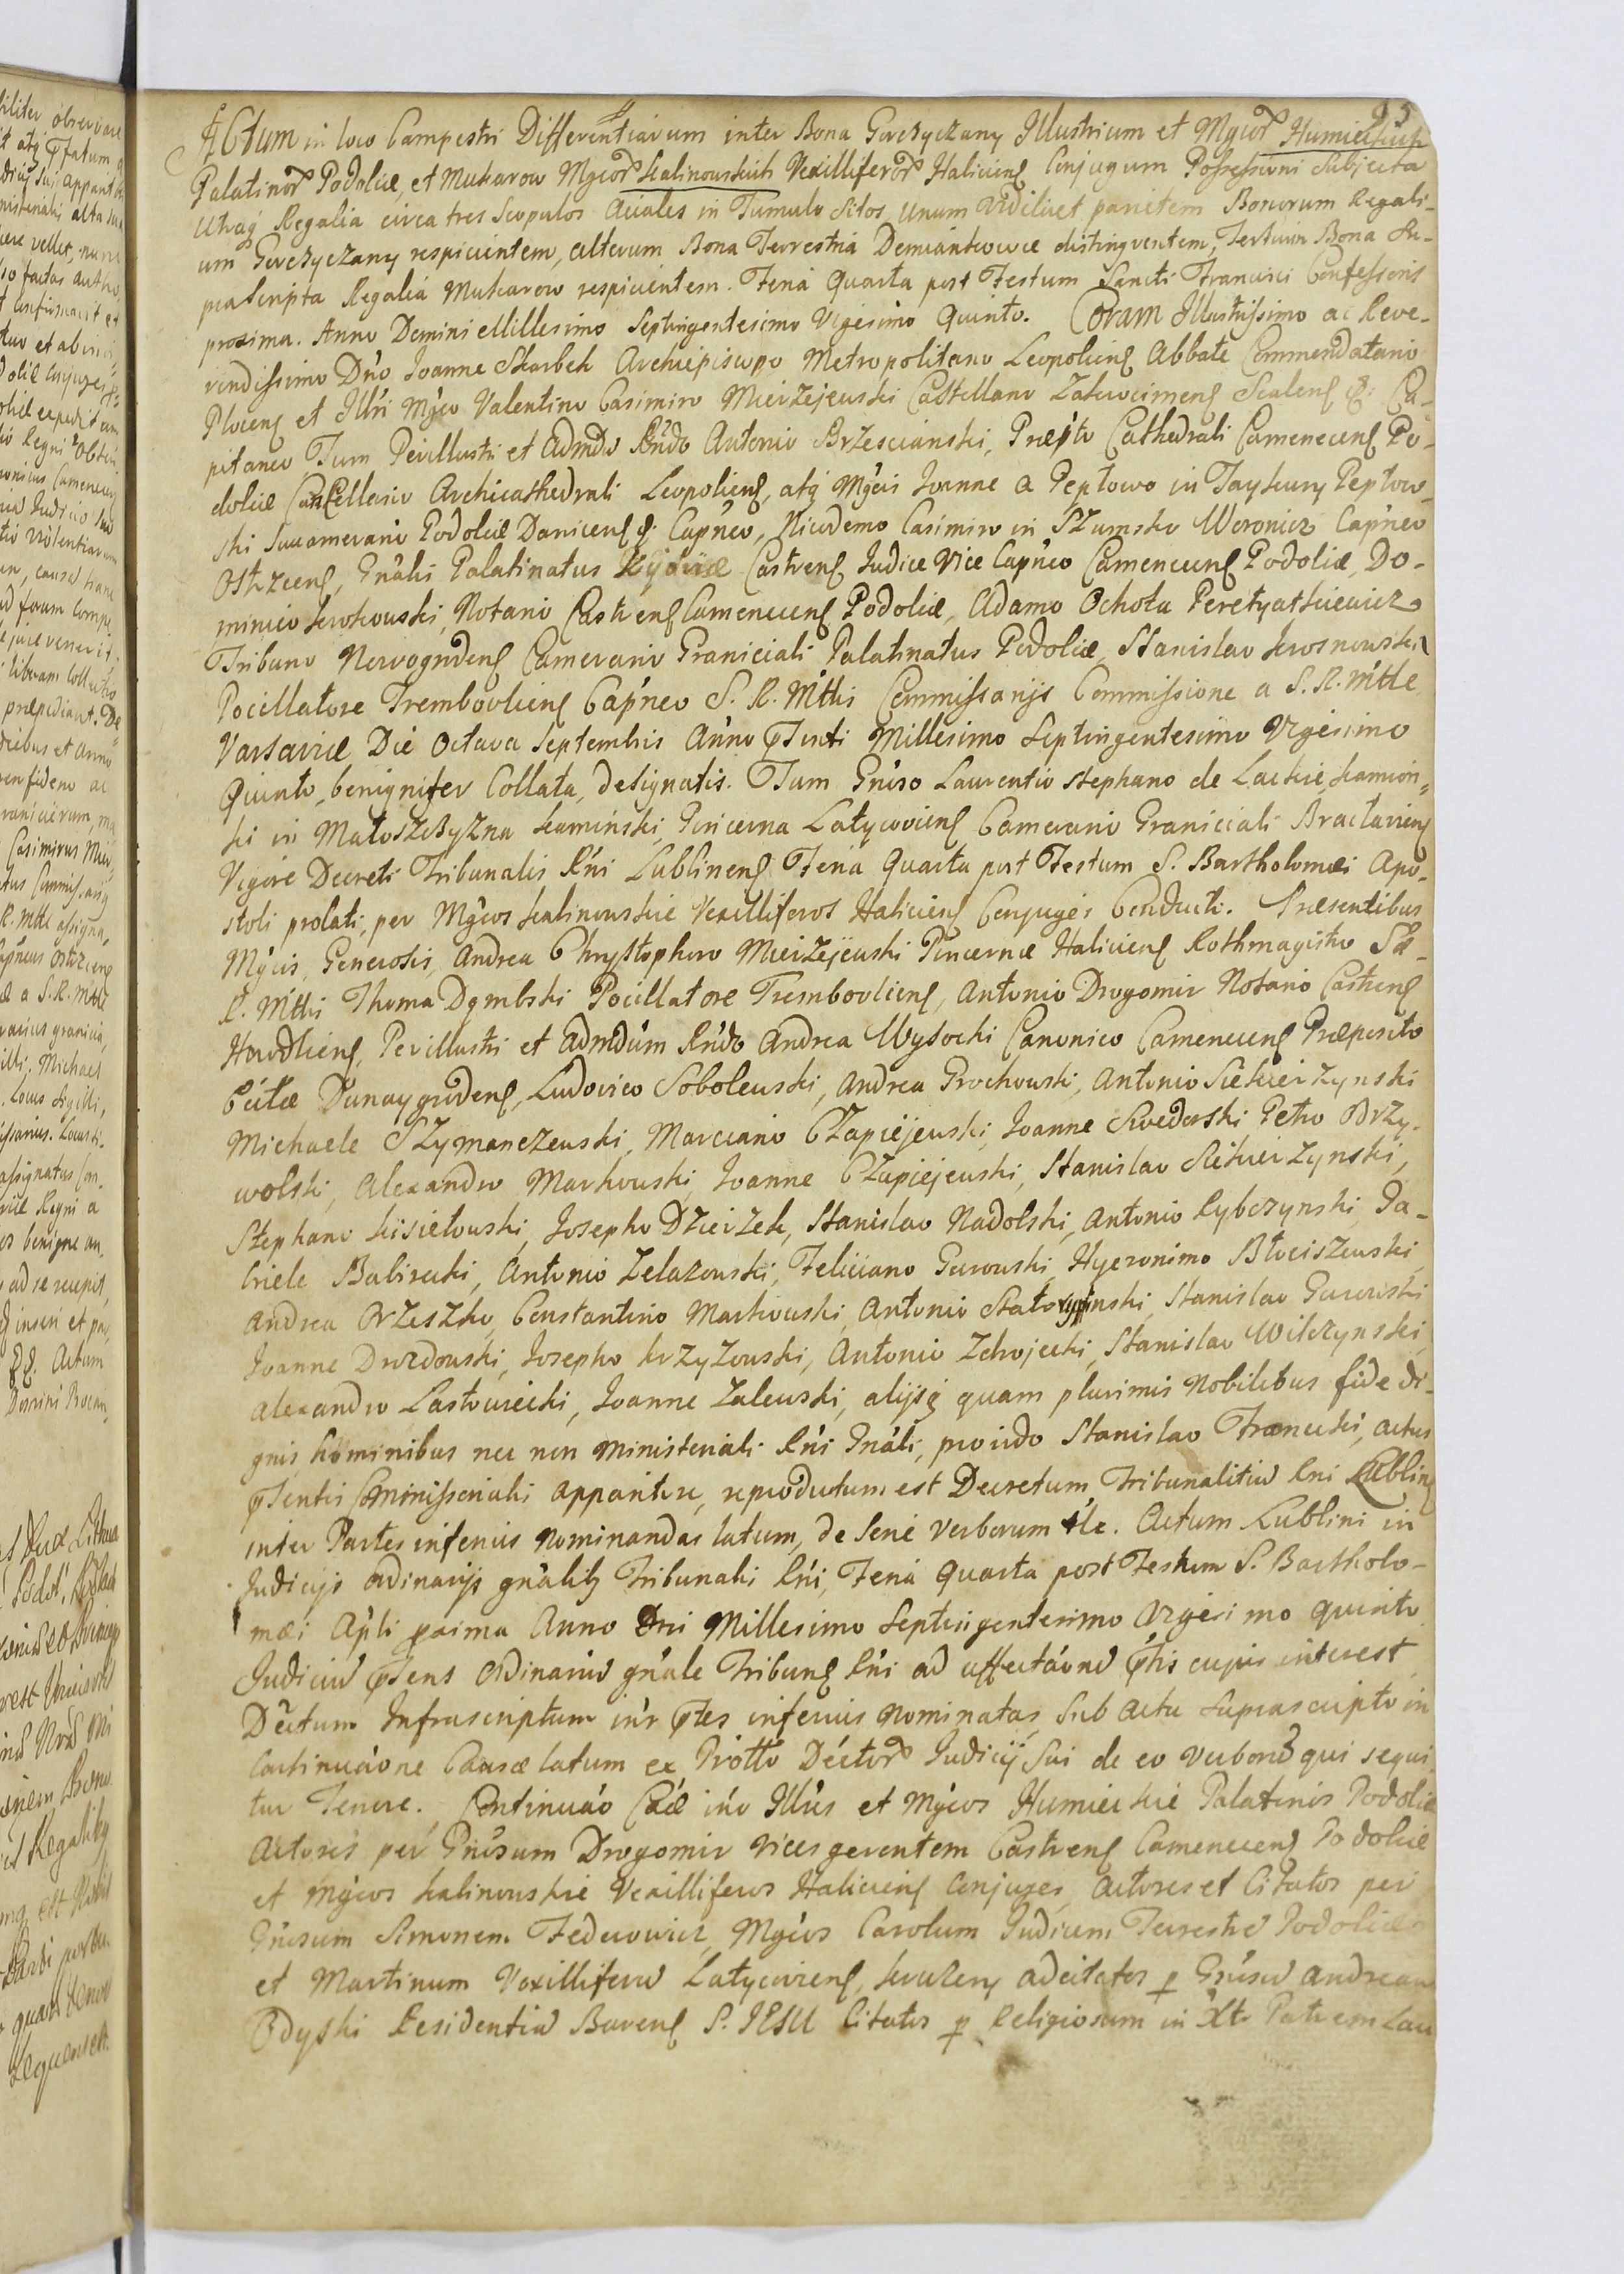 95
Actum in loco Campestri Differentiarum inter Bona Gerczyczany Illustrium et Mgcor Humieckich
Palatinor Podoliæ, et Mukarow Mgcor Kalinowskich Vexilliferor Haliciens Conjugum Possessioni Subjecta
Utraq Regalia circa tres Scopulos Aciales in Tumulo Sitos, Unum Videlicet parietem Bonorum Regali-
um Gerczyczany respicientem, alterum Bona Terrestria Demiankowce distingventem, Tertium Bona Su-
prascripta Regalia Mukarow respicientem. Feria Quarta post Festum Sancti Francisci Confessoris
proxima. Anno Domini Millesimo Septingentesimo Vigesimo Quinto. Coram Illustrissimo ac Reve-
rendissimo Dno Joanne Skarbek Archiepiscopo Metropolitano Leopoliens Abbate Commendatario
Plocens et Illri Mgco Valentino Casimiro Mierzejewski Castellano Zakrocimens Scalens &: Ca-
pitaneo Tum Perillustri et Admdu Rndo Antonio Brzescianski, Præpto Cathedrali Camenecens Po-
doliæ Cancellario Archicathedrali Leopoliens, atq Mgcis Joanne a Peptowo in Taykury Peptow-
ski Succamerario Podoliæ Danicens & Capneo, Nicodemo Casimiro in Szumsko Woronicz Capneo
Ostrzcens, Gnalis Palatinatus Kijoviæ Castrens Judice Vice Capneo Camenecens Podoliæ, Do-
minico Serokowski, Notario Castrens Camenecens Podoliæ, Adamo Ochota Peretyatkiewicz
Tribuno Nowogrodens Camerario Graniciali Palatinatus Podoliæ, Stanislao Krosnowski
Pocillatore Trembovliens Capneo S. R. Mttis Commissarijs Commissione a S. R. Mtte
Varsaviæ Die Octava Septembris Anno pnti Millesimo Septingentesimo Vigesimo
Quinto, benigniter Collata, designatis. Tum Gnroso Laurentio Stephano de Lackie Kamin-
ki in Matoszczyzna Kaminski Pincerna Latycoviens Camerario Graniciali Braclaviens
Vigore Decreti Tribunalis Rni Lublinens Feria Quarta post Festum S. Bartholomæi Apo-
stoli prolati, per Mgcos Kalinowskie Vexilliferos Haliciens Conjuges Conducti. Præsentibus
Mgcis, Generosis, Andrea Chrystophoro Mierzejewski Pincerna Haliciens Rothmagistro Sæ-
R. Mttis Thoma Dymbski Pocillatore Trembovliens, Antonio Drogomir Notario Castrens
Horodliens, Perillustri et Admdum Rndo Andrea Wysocki Canonico Camenecens Præposito
Dunaygrodens, Ludovico Sobolewski, Andrea Grochowski, Antonio Siekierzynski
Michaele Szymanczewski, Marciano Czapiejewski, Joanne Swederski Petro Brzy-
wolski, Alexandro Markowski, Joanne Czapiejewski, Stanislao Siekierzynski,
Stephano Kisielowski, Josepho Dzierzek, Stanislao Nadolski, Antonio Rybczynski, Ga-
briele Babirecki, Antonio Zelazowski, Feliciano Gurowski, Hyeronimo Błociszewski
Andrea Orzeszko, Constantino Markowski, Antonio Statorypinski, Stanislao Gurowski
Joanne Drozdowski, Josepho Krzyzowski, Antonio Zdrojecki, Stanislao Wilczynski
Alexandro Lastowiecki, Joanne Zalewski, alijsq quam plurimis Nobilibus fide di-
gnis hominibus nec non Ministeriali Rni Gnali, provido Stanislao Franecki, actus
pntis Commissorialis apparitore, reproductum est Decretum Tribunalitiu Rni Lublins
inter Partes inferius nominandas latum, de Serie Verborum tle. Actum Lublini in
Judicijs ordinarijs gnalib Tribunalis Rni, Feria Quarta post Festum S. Bartholo-
mæi Apli pxima Anno Dni Millesimo Septingentesimo Vigesimo quinto
Judiciu pñens Ordinariu gnale Tribuns Rni ad affectãonē ptis cujus interest
Dectum Infrascriptum inr ptes inferius nominatas, Sub Actu suprascripto in
Continuãone Causæ latum ex Protto Dector Judicij Sui de eo Verborū qui sequi-
tur Tenore. Continuão Cæ inr Illres et Mgcos Humieckie Palatinos Podoliæ
Actores per Gnrsum Drogomir Vices gerentem Castrens Camenecens Podoliæ
et Mgcos Kalinowskie Vexilliferos Haliciens Conjuges, Actores et Citatos per
Gnrsum Simonem Federowicz, Mgcos Carolum Judicem Terrestre Podoliæ
et Martinum Vexilliferu Latycoviens adcitatos p Gnrsu Andream
Odyski Residentiu Barens S. JESU Citatos p Religiosum in Xto Patrem Lau